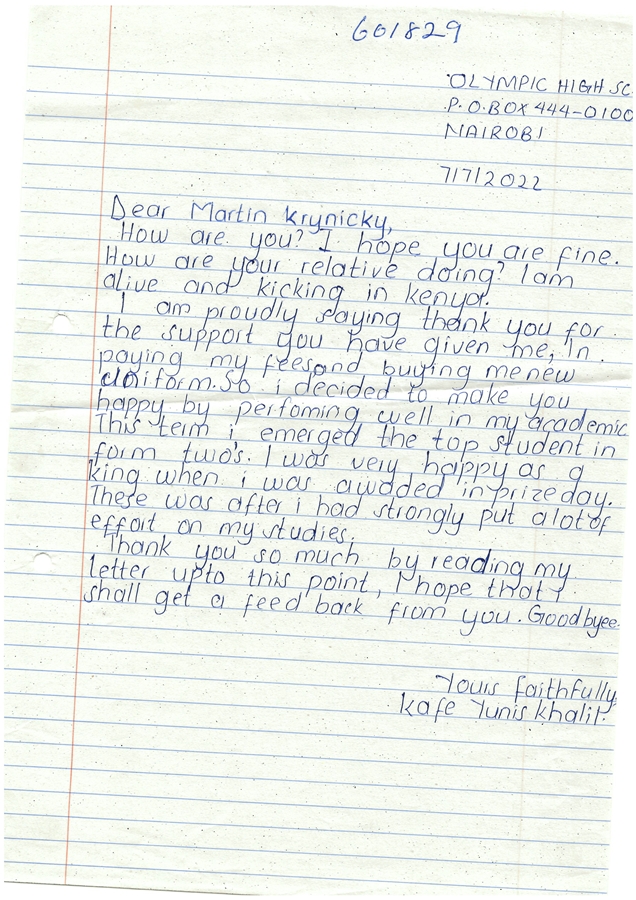 601829
OLYMPIC HIGH SC
P.O.BOX 444-0100
NAIROBI
7/7/2022
Dear Martin Krynicky,
How are you? I hope you are fine.
How are your relative doing? I am
alive and kicking in kenya.
I am proudly saying thank you for
the support you have given me, in
paying my feesand buying me new
uniform. So i decided to make you
happy by perfoming well in my academic
This term i emerged the top student in
form two's. I was very happy as a
king when i was awaded in prize day.
These was after i had strongly put a lot of
effort on my studies.
Thank you so much by reading my
letter upto this point, I hope that I
shall get a feed back from you. Goodbyee.
Yours faithfully
Kafe Yunis Khalif.